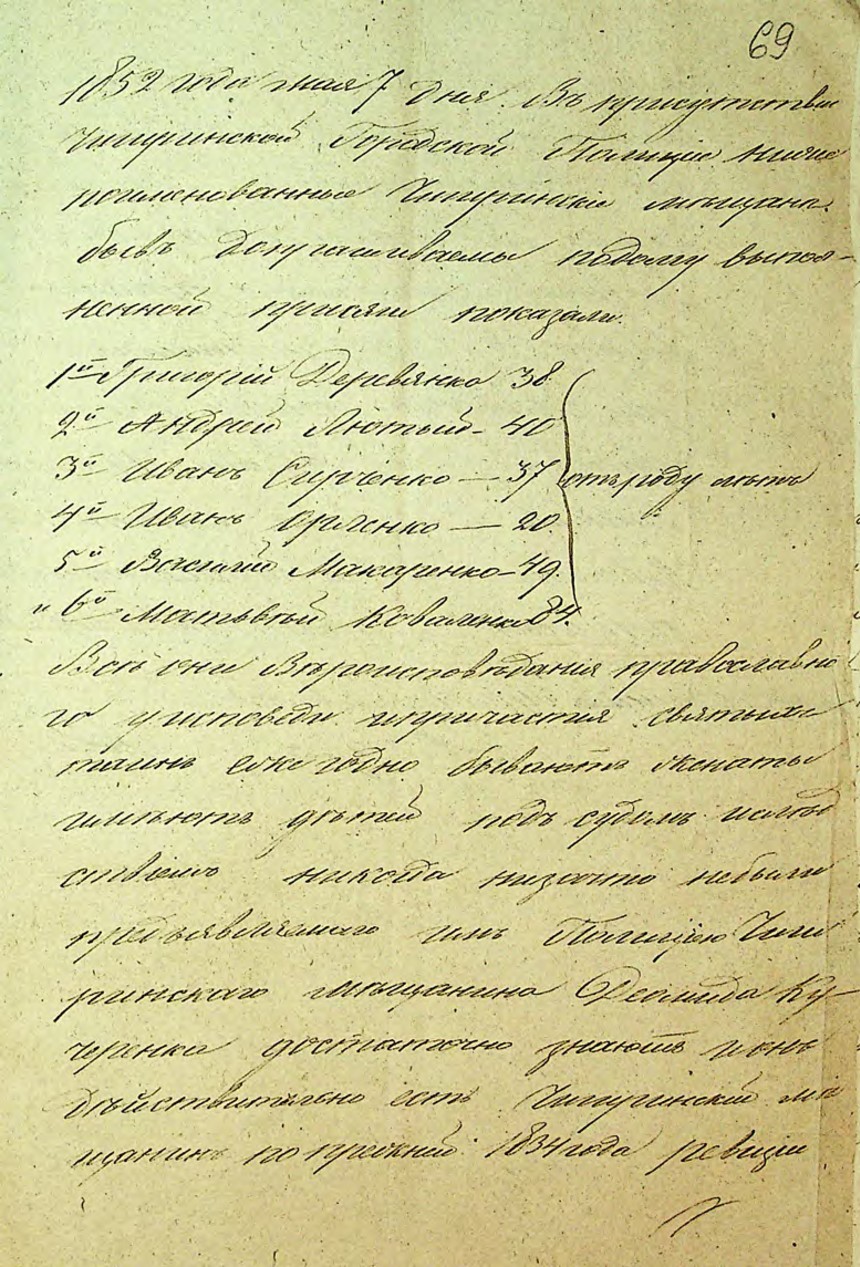 69
1852 года мая 7 дня. Въ присутствии
Чигиринской Городской Полиции ниже
поименованные Чигиринские мещане
бывъ допрашиваемы подолгу выпол-
ненной присяги показали.
1й Григорій Деревянко 38
2й Андрей Лютый - 40
3й Иванъ Сирченко — 37 отъ роду летъ
4й Иванъ — 20.
5й Василий Макаренко - 49.
" 6й Матьвей Коваленко 84.
Всѣ они Вѣроисповѣдания православно
го у исповеди и причастия святыхъ
таинъ ежегодно бываютъ женаты
имѣютъ дѣтей подъ судомъ и слѣд
ствиемъ никогда низачто небыли
предъявляемого имъ Полициею Чиги
ринскаго мѣщанина Деомида Ку-
черенка достаточно знаютъ и онъ
Дѣйствительно есть Чигиринский мѣ
щанинъ по прежней 1834 года ревизии